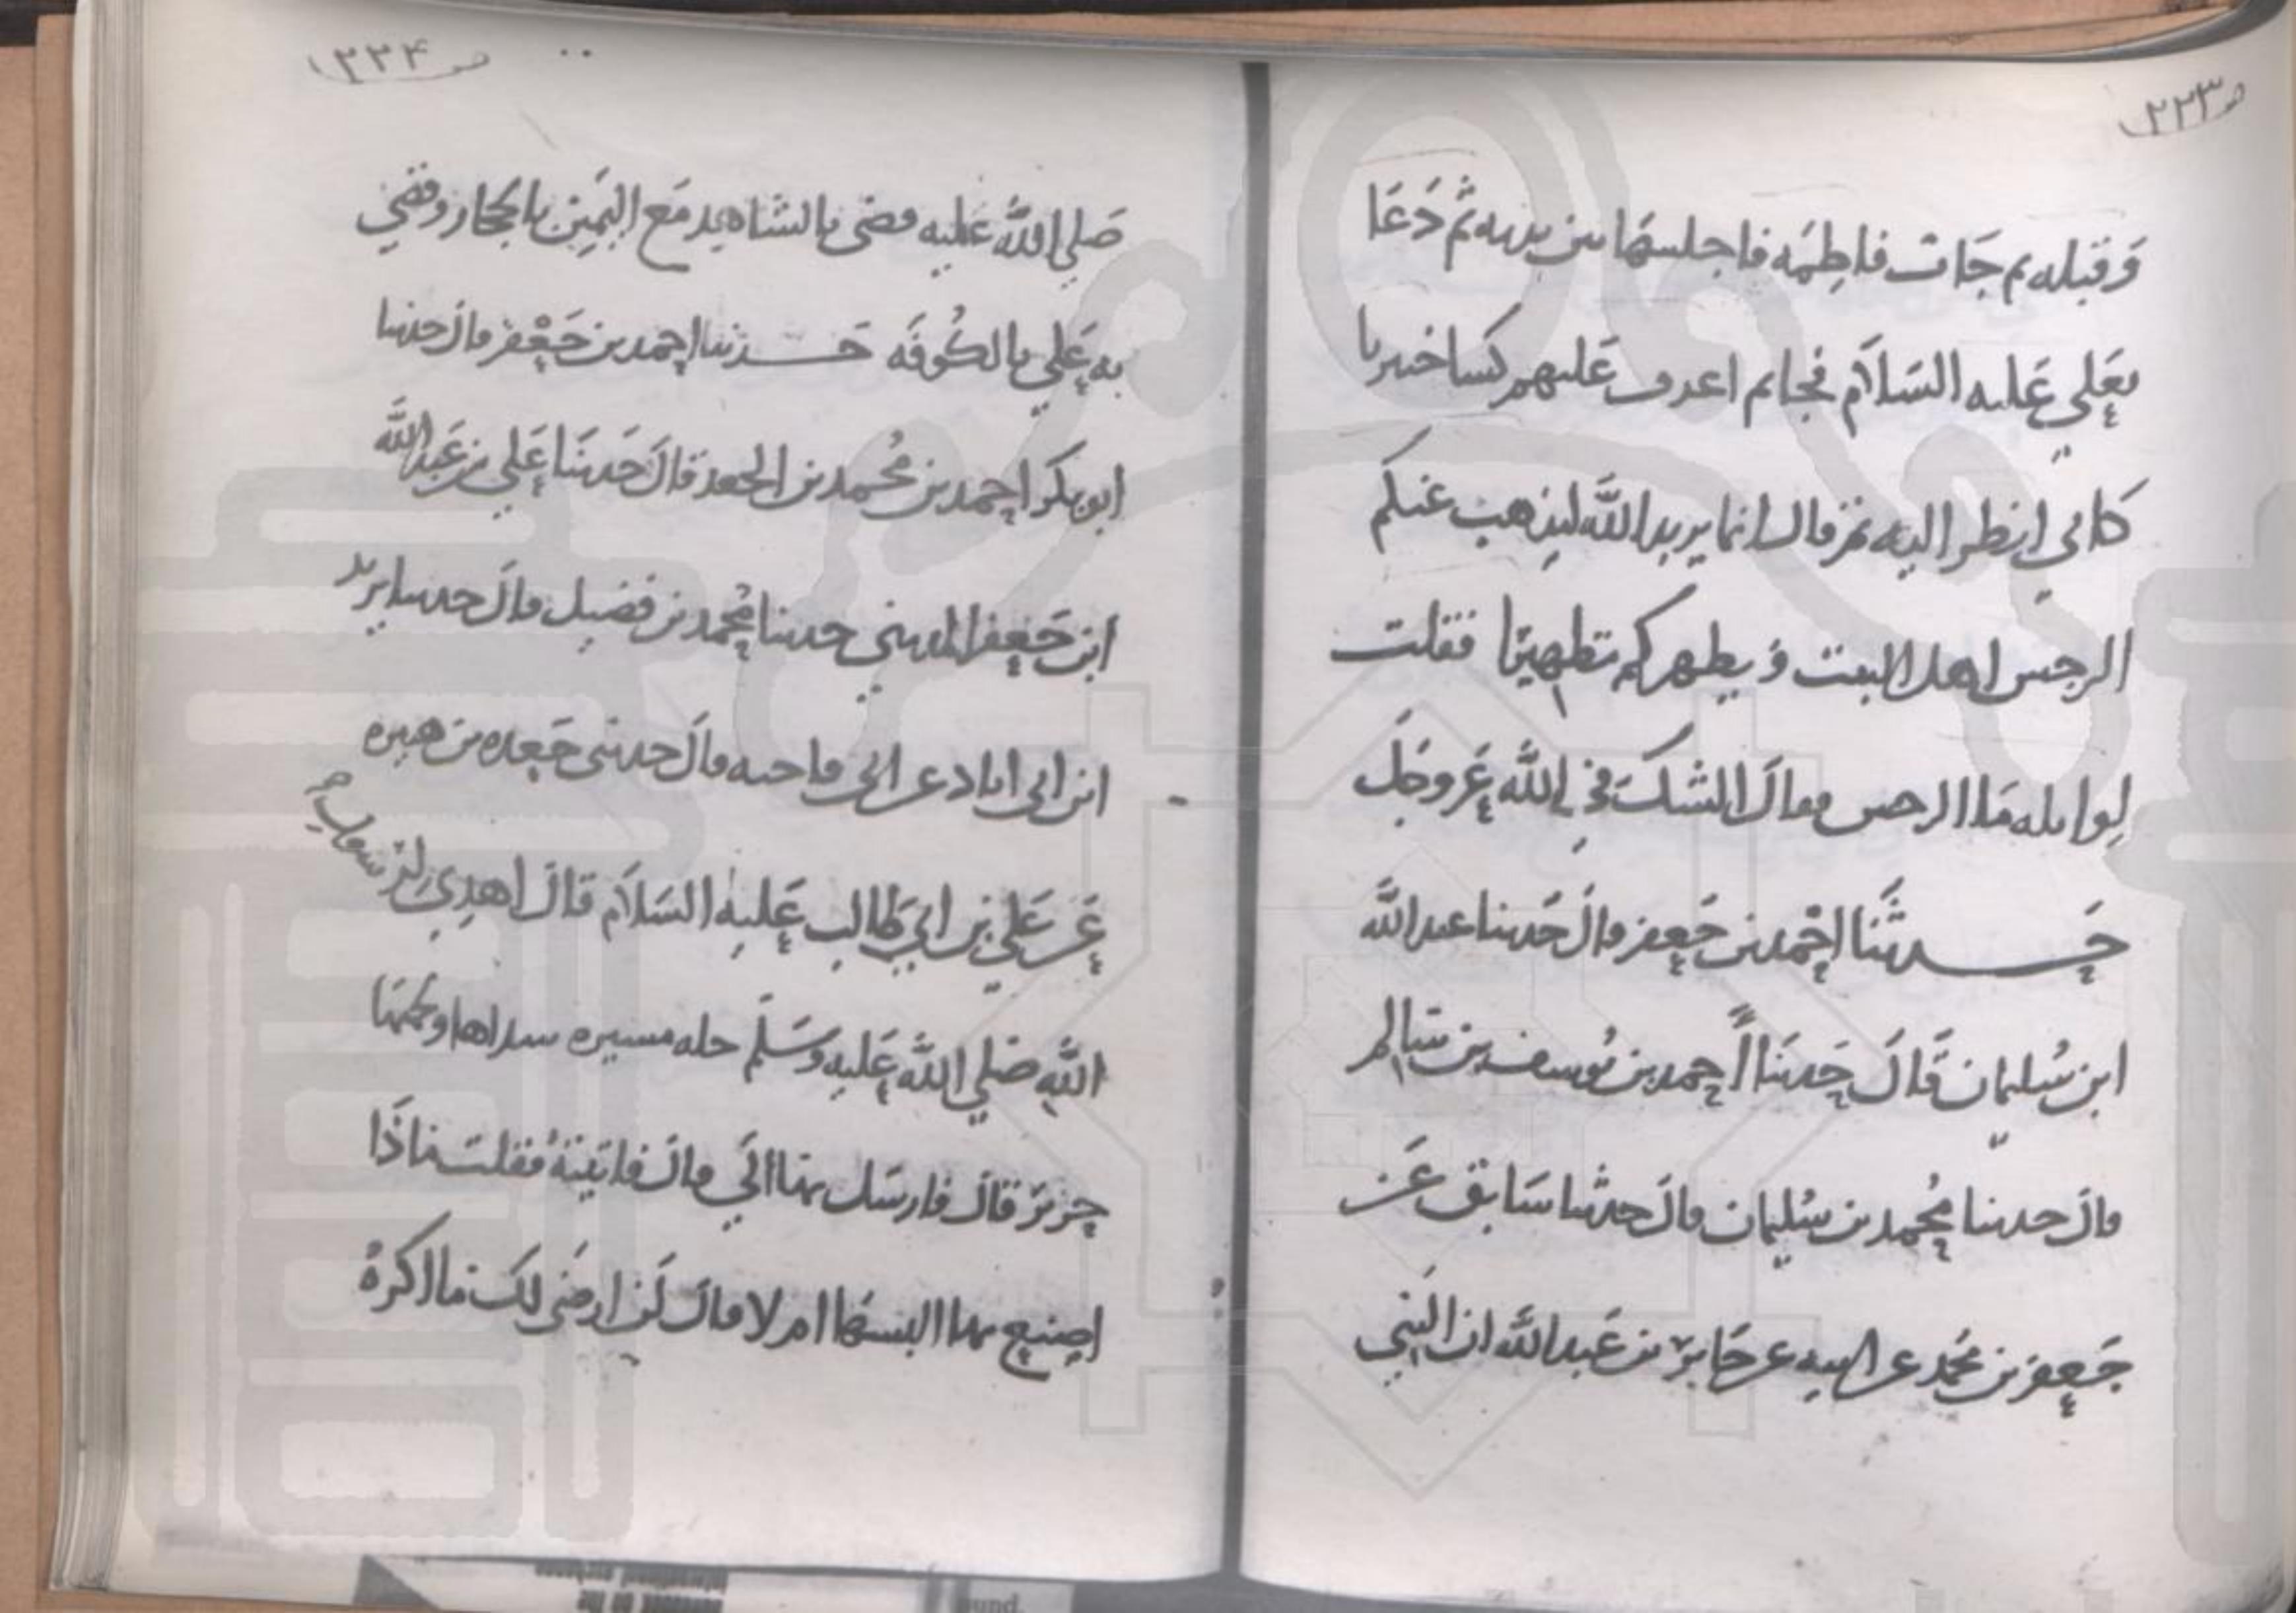 ص ٢٢٣
وَقبله ثم جَات فاطِمَه فاجلسهَا بين يديه ثم دَعَا
بعَلي عَليه السَلاَم فجا ثم اغدف عَليهم كسا خيبريا
كاني انظر اليه ثم قال انما يريد اللَّه ليذهب عنكم
الرجس اهل البيت وَيطهركم تطهيرًا فقلت
لواثله مَا الرجس فقالَ الشكَ في اللَّه عَز وجَل
حَدثَنا احْمد بن جَعفر قالَ حَدثنا عبد اللَّه
ابن سُليمان قَالَ حَدثنَا احمد بن يُوسف بن سَالم
قالَ حدثنا مُحمد بن سُليمان قالَ حدثنا سَابق عَن
جَعفر بن مُحمَد عن ابيه عن جَابر بن عَبد اللَّه ان النَبي
ص ٢٢٤
صَلي اللَّه عَليه قضى بالشاهد مَع اليَمِين بالحجاز وقضي
به عَلي بالكُوفَه حَدثنا احمد بن جَعْفر قالَ حدثنا
ابو بكر احمد بن مُحمد بن الجعد قالَ حَدثنَا عَلي بن عَبد اللَّه
ابن جَعفر المديني حدثنا مُحمد بن فضيل قالَ حدثنا يزيد
ابن ابي زياد عن ابي فاخته قالَ حدثني جَعده بن هبيره
عَن عَلي بن ابي طَالب عَليه السَلاَم قالَ اهدِيَ لرسول
اللَّه صَلي اللَّه عَليه وَسَلَم حله مسيره سداها و لحمتها
حَرير قالَ فارسَل بهَا الَي قالَ فاتيتهُ فقلت مَاذَا
اصنع بها البسهَا ام لا قالَ لَن ارضَى لكَ مَا اكرهُ